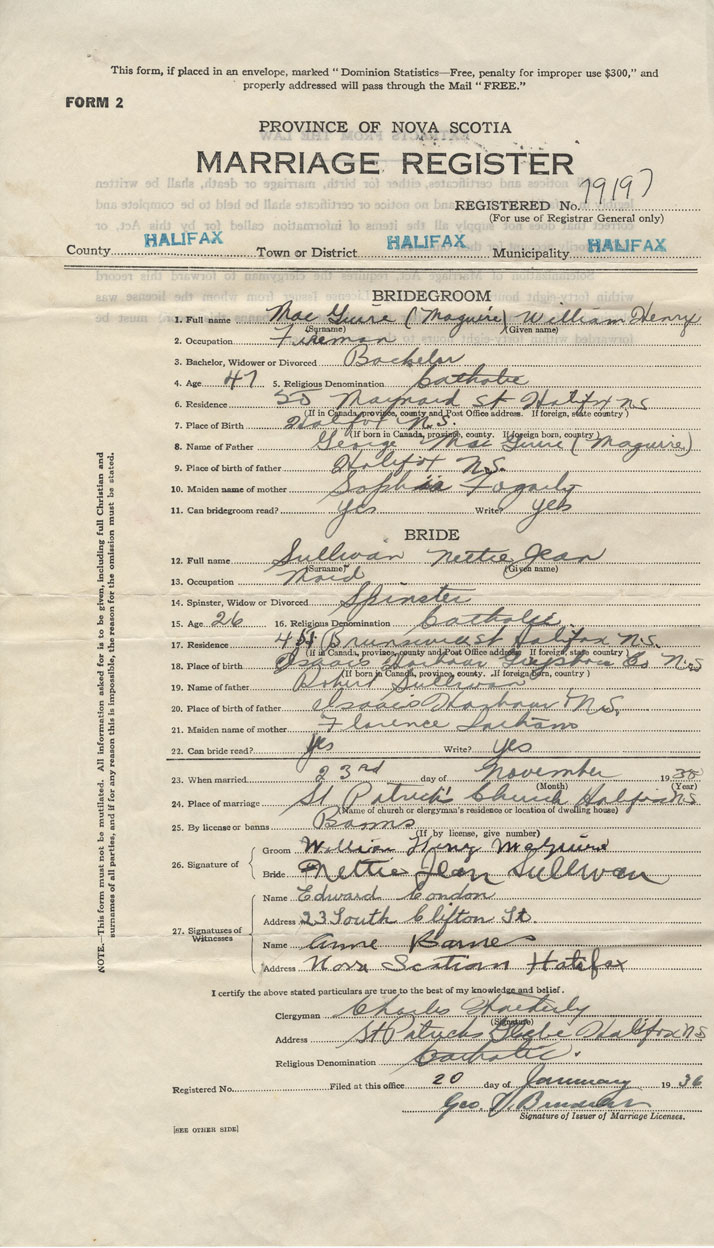 This form, if placed in an envelope, marked "Dominion Statistics—Free, penalty for improper use $300," and
properly addressed will pass through the Mail "FREE."
FORM 2
PROVINCE OF NOVA SCOTIA
MARRIAGE REGISTER
REGISTERED No. 19197
(For use of Registrar General only)
County HALIFAX Town or District HALIFAX Municipality HALIFAX
BRIDEGROOM
1. Full name Mac Guire (Maguire) William Henry
(Surname) (Given name)
2. Occupation Fireman
3. Bachelor, Widower or Divorced Bachelor
4. Age 47 5. Religious Denomination Catholic
6. Residence 50 Maynard St Halifax N.S
(If in Canada, province, county and Post Office address. If foreign, state country)
7. Place of Birth Halifax N.S.
(If born in Canada, province, county. If foreign born, country)
8. Name of Father George Mac Guire (Maguire)
9. Place of birth of father Halifax N.S.
10. Maiden name of mother Sophia Fogarty
11. Can bridegroom read? yes Write? yes
BRIDE
12. Full name Sullivan Nettie Jean
(Surname) (Given name)
13. Occupation Maid
14. Spinster, Widow or Divorced Spinster
15. Age 26 16. Religious Denomination Catholic
17. Residence Brunswick St Halifax N.S.
(If in Canada, province, county and Post Office address. If foreign, state country)
18. Place of birth Isaacs Harbour Guysboro Co N.S
(If born in Canada, province, county. If foreign born, country)
19. Name of father Robert Sullivan
20. Place of birth of father Isaacs Harbour N.S.
21. Maiden name of mother Florence
22. Can bride read? yes Write? yes
23. When married 23rd day of November 19
(Month) (Year)
24. Place of marriage St Patrick's Church Halifax NS
(Name of church or clergyman's residence or location of dwelling house)
25. By license or banns Banns
(If by license, give number)
26. Signature of
Groom William Henry McGuire
Bride Nettie Jean Sullivan
27. Signatures of Witnesses
Name Edward Condon
Address 23 South Clifton St.
Name Anne Barnes
Address Nova Scotian Hotel Halifax
I certify the above stated particulars are true to the best of my knowledge and belief.
Clergyman Charles
(Signature)
Address St Patricks Glebe Halifax NS
Religious Denomination Catholic.
Registered No. Filed at this office 20 day of January 19 36
Geo
Signature of Issuer of Marriage Licenses.
[SEE OTHER SIDE]
NOTE.—This form must not be mutilated. All information asked for is to be given, including full Christian and
surnames of all parties, and if for any reason this is impossible, the reason for the omission must be stated.